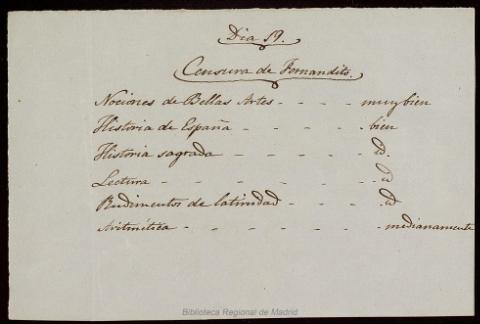 Dia 19.
Censura de Fernandito.
Nociones de Bellas Artes - - - - muy bien
Historia de España - - - - - bien
Historia sagrada - - - - - Id.
Lectura - - - - - - Id
Rudimentos de latinidad - - - - Id
Aritmética - - - - - - medianamente
Biblioteca Regional de Madrid